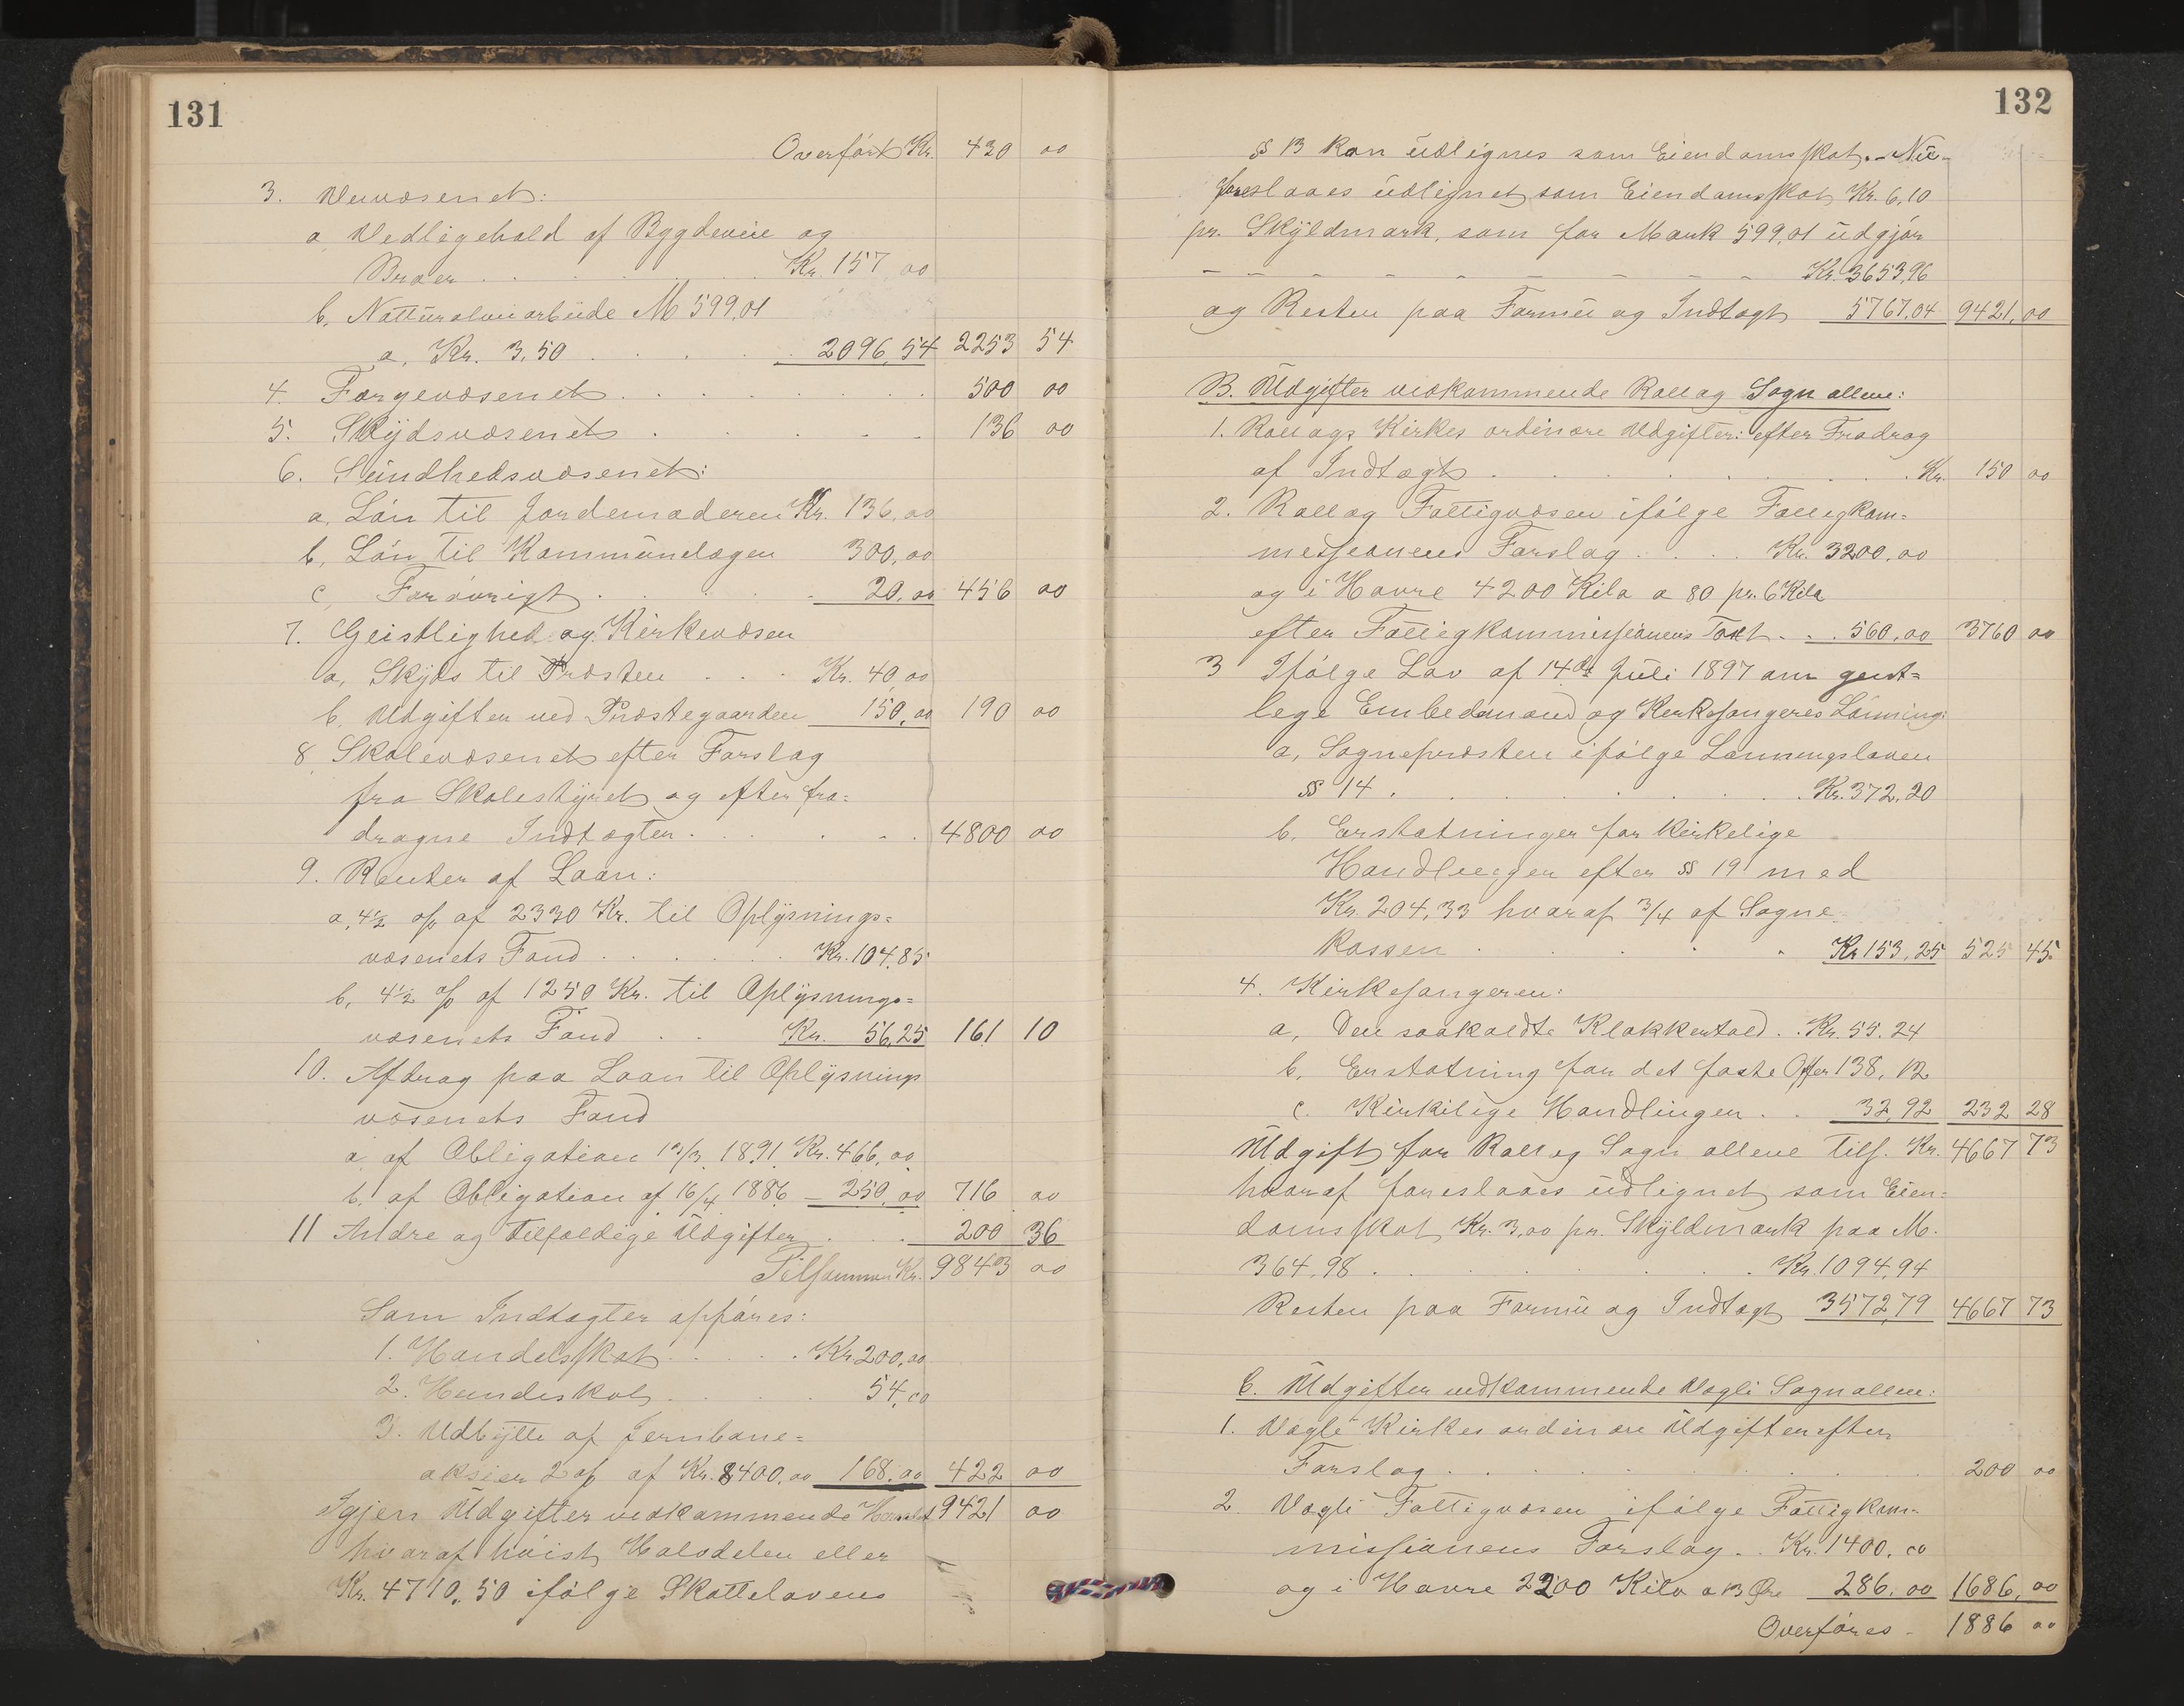 131
Overført Kr. 420 00
3. Veivæsenet:
a, Vedligehold af Bygdeveie og
Broer . . . . . Kr. 157,00
b, Natturalveiarbeide M 599,01
a, Kr. 3,50 . . . . 2096,54 2253 54
4. Færgevæsenet . . . . . . . 500 00
5. Skydsvæsenet . . . . . 136 00
6. Sundhedsvæsenet:
a, Løn til Jordemoderen Kr. 136,00
b, Løn til Kommunelægen 300,00
c, Forøvrigt . . . . . 20,00 456 00
7. Geistlighed og Kirkevæsen
a, Skyds til Præsten . . . Kr. 40,00
b, Udgifter ved Præstegaarden 150,00 190 00
8 Skolevæsenet efter Forslag
fra Skolestyret og efter fra-
dragne Indtægter . . . . . . 4800 00
9. Renter af Laan:
a, 4½ % af 2330 Kr. til Oplysnings-
væsenets Fond . . . . . . Kr. 104,85
b, 4½ % af 1250 Kr. til Oplysnings-
væsenets Fond . . Kr. 56,25 161 10
10. Afdrag paa Laan til Oplysnings
væsenets Fond
a, af Obligation 12/3 1891 Kr. 466,00
b, af Obligation af 16/4 1886 – 250,00 716 00
11 Andre og tilfældige Udgifter . . . 200 36
Tilsammen Kr. 9843 00
Som Indtægter opføres:
1. Handelsskat . . . . . Kr. 200,00
2. Hundeskat . . . . 54,00
3. Udbytte af Jernbane-
aksier 2 % af Kr. 8400,00 168,00 422 00
Igjen Udgifter vedkommende Herredet 9421 00
hvoraf høist Halvdelen eller
Kr. 4710,50 ifølge Skattelovens
132
§ 13 kan udlignes som Eiendomsskat. – Nu
foreslaaes udlignet som Eiendomsskat Kr. 6,10
pr. Skyldmark, som for Mark 599,01 udgjør
– – – – – – – – Kr. 3653,96
og Resten paa Formue og Indtægt 5767,04 9421,00
B. Udgifter vedkommende Rollag Sogn allene:
1. Rollags Kirkes ordinære Udgifter: efter Fradrag
af Indtægt . . . . . . . . Kr. 150 00
2. Rollag Fattigvæsen ifølge Fattigkom-
messionens Forslag . . . . Kr. 3200,00
og i Havre 4200 Kilo a 80 pr. 6 Kilo
efter Fattigkommissionens Taxt . . . 560,00 3760 00
3 Ifølge Lov af 14de Juli 1897 om geist-
lege Embedsmænd og Kirkesangeres Lønning:
a, Sognepræsten ifølge Lønningsloven
§ 14 . . . . . . . Kr. 372,20
b, Erstatninger for kirkelige
Handlinger efter § 19 med
Kr. 204,33 hvoraf 3/4 af Sogne
kassen . . . . . Kr 153,25 525 45
4. Kirkesangeren:
a, Den saakaldte Klokkertold . . Kr. 55.24
b, Erstatning for det faste Offer 138,12
c. Kirkilige Handlinger . . 32,92 232 28
Udgift for Rollag Sogn allene tils. Kr. 4667 73
hvoraf foreslaaes udlignet som Eien-
domsskat Kr. 3,00 pr. Skyldmark paa M.
364,98 . . . . . . . Kr. 1094,94
Resten paa Formue og Indtægt 3572,79 4667 73
C. Udgifter vedkommende Vegli Sogn allene:
1. Vegli Kirkes ordinære Udgifter efter
Forslag . . . . . . . . 200 00
2 Vegli Fattigvæsen ifølge Fattigkom-
missionens Forslag . . Kr. 1400,00
og i Havre 2200 Kilo a 13 Øre 286,00 1686,00
Overføres – 1886 00